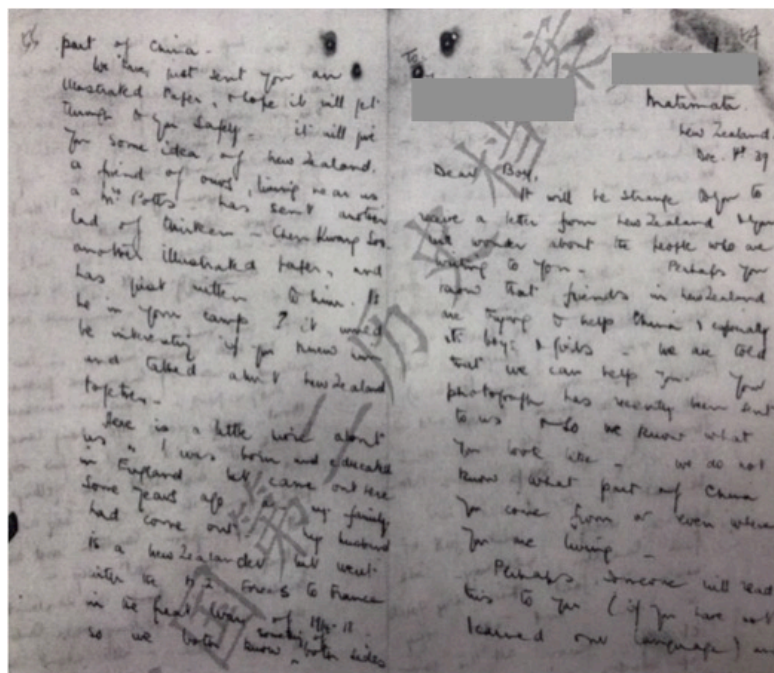 part of China -
We have just sent you an
illustrated paper, & hope it will get
through to you safely - it will give
you some idea of New Zealand.
a friend of ours, living near us
a Mr Potts has sent another
lad of thirteen - Chen Kwang Soo
another illustrated paper, and
has just written to him. Is
he in your camp? it would
be interesting if you knew him
and talked about New Zealand
together -
Here is a little more about
us - I was born and educated
in England but came out here
some years ago as my family
had come out. My husband
is a New Zealander but went
with the N.Z. Forces to France
in the Great War of 1914-18.
so we both know something of both sides
To:
Matamata.
New Zealand.
Dec. 39
Dear Boy,
It will be strange to you to
receive a letter from New Zealand & you
will wonder about the people who are
writing to you - Perhaps you
know that friends in New Zealand
are trying to help China & especially
its boys & girls - We are told
that we can help you. Your
photograph has recently been sent
to us & so we know what
you look like - we do not
know what part of China
you come from or even where
you are living -
Perhaps someone will read
this to you (if you have not
learned our language) and
国第二历史档案